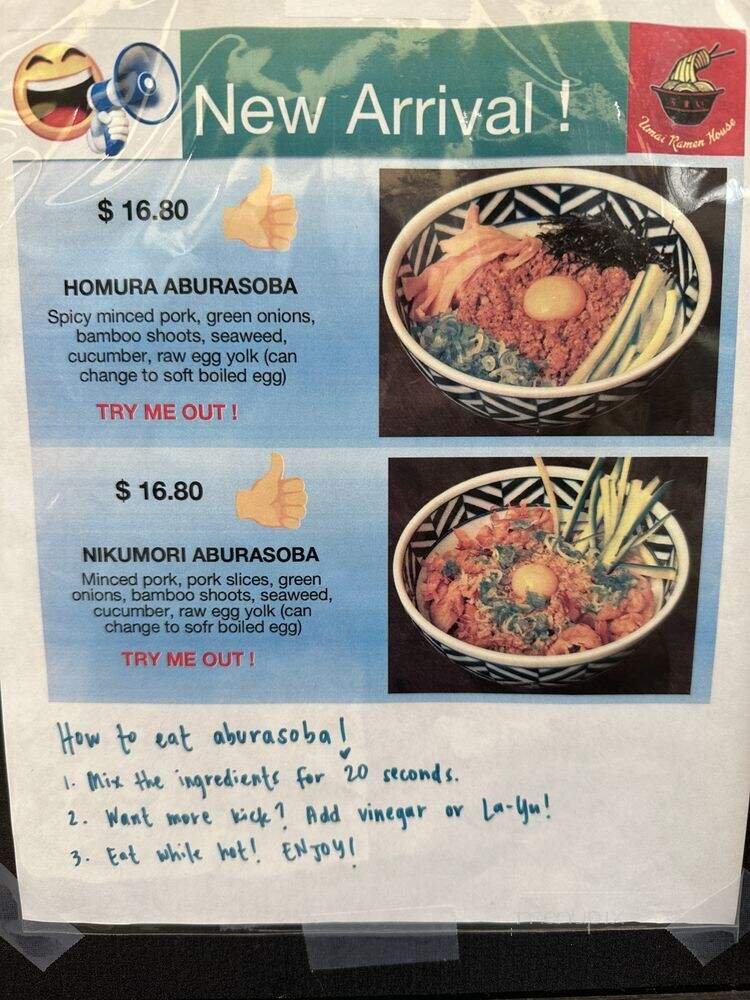 New Arrival !
うまい
Umai Ramen House
$ 16.80
HOMURA ABURASOBA
Spicy minced pork, green onions,
bamboo shoots, seaweed,
cucumber, raw egg yolk (can
change to soft boiled egg)
TRY ME OUT !
$ 16.80
NIKUMORI ABURASOBA
Minced pork, pork slices, green
onions, bamboo shoots, seaweed,
cucumber, raw egg yolk (can
change to sofr boiled egg)
TRY ME OUT !
How to eat aburasoba!
1. Mix the ingredients for 20 seconds.
2. Want more kick? Add vinegar or La-Yu!
3. Eat while hot! ENJOY!